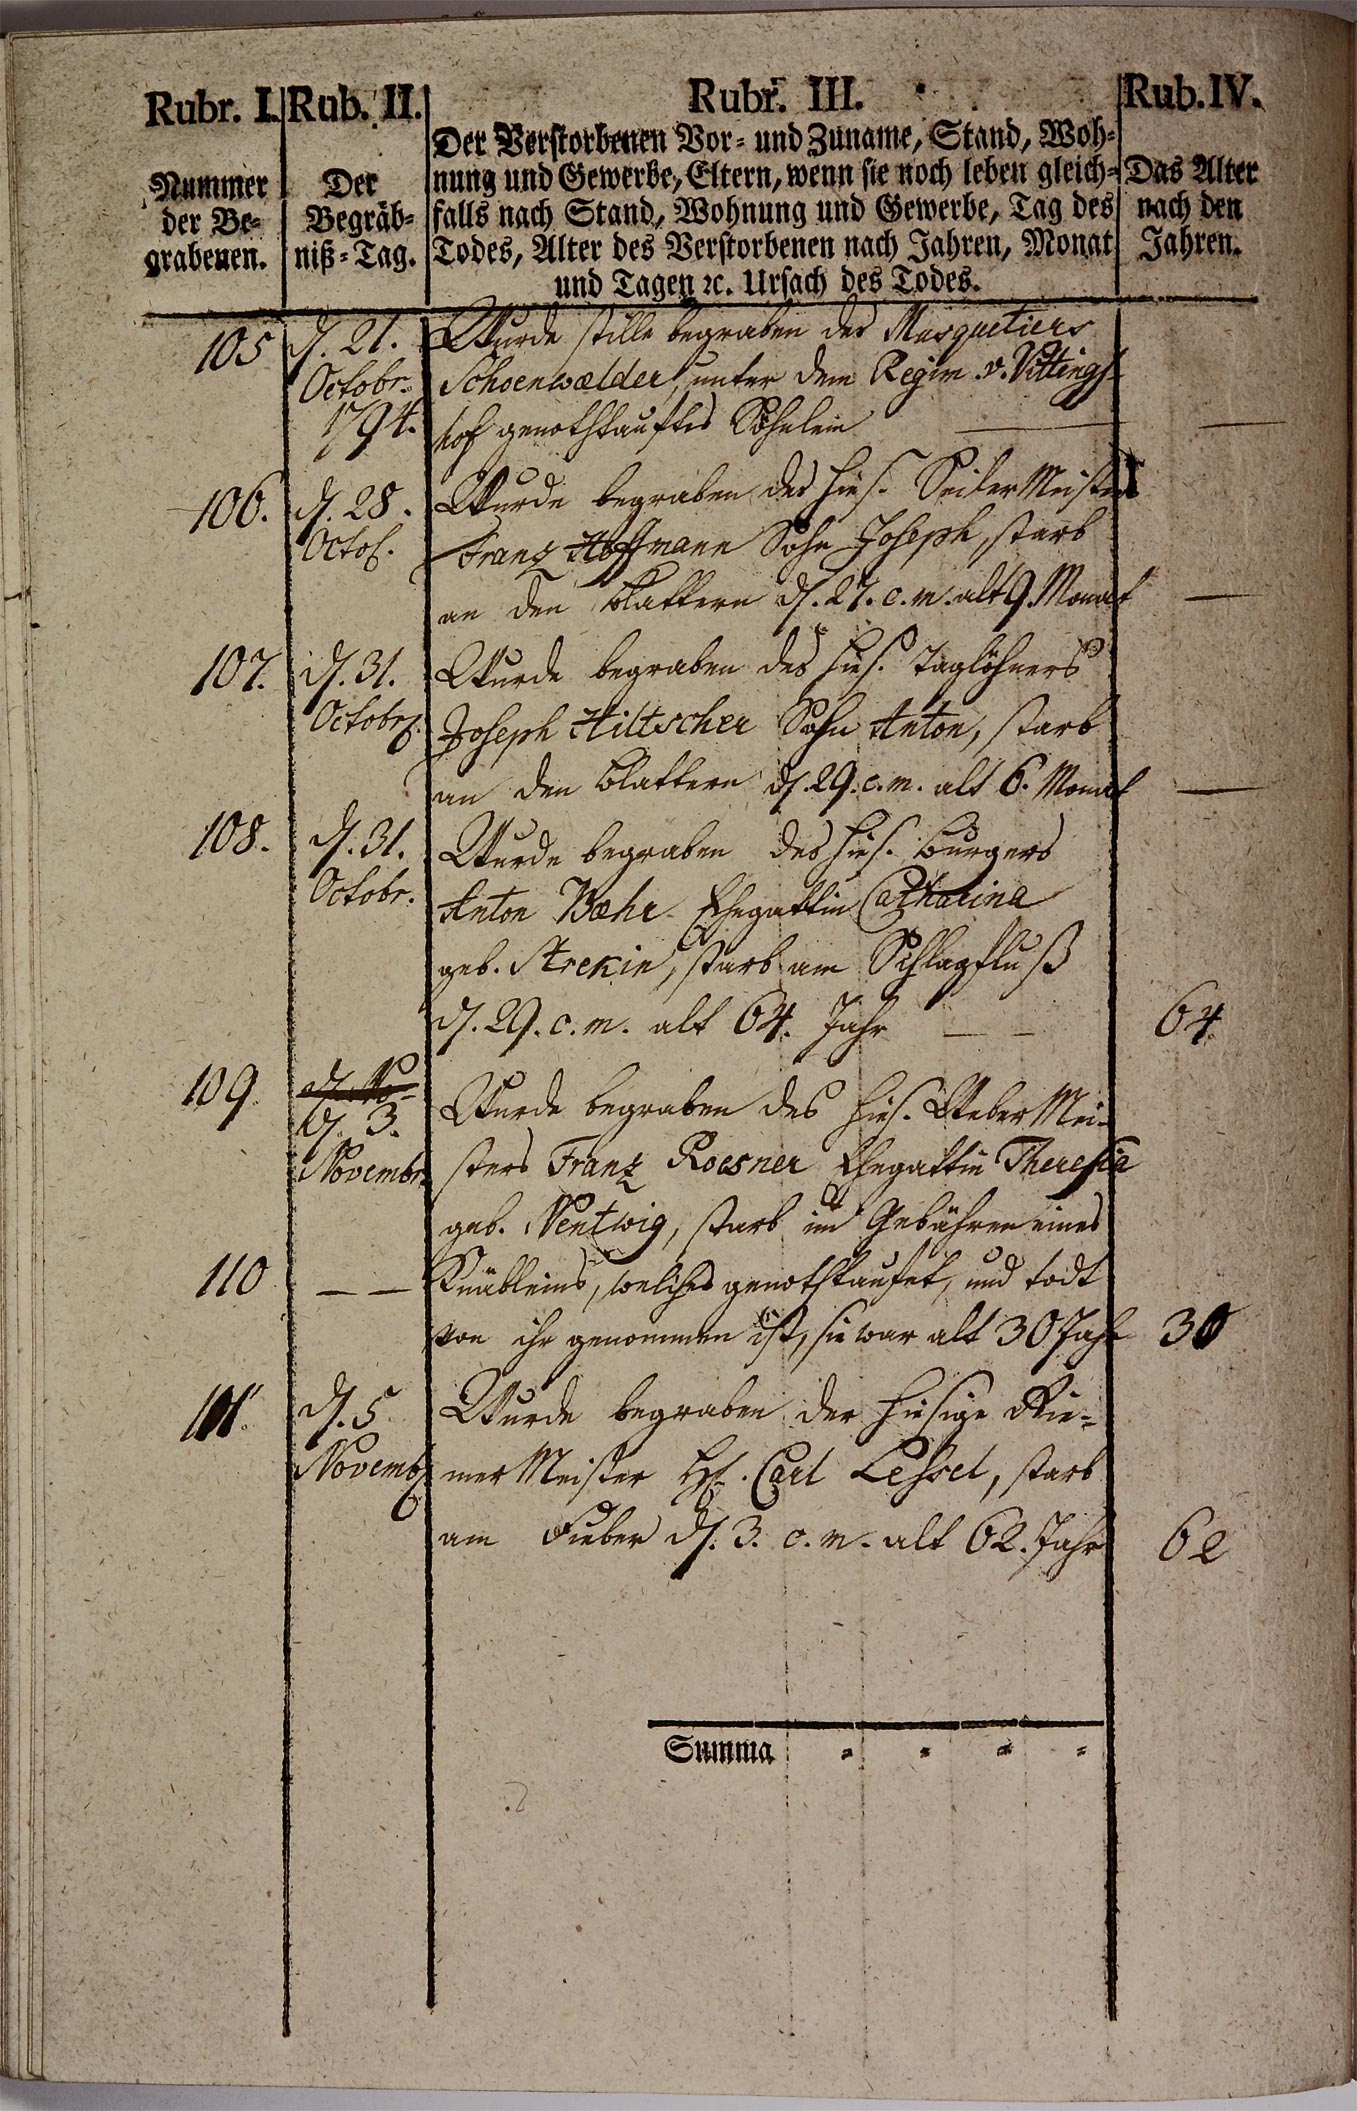 Rubr. I. Rub. II. Rubr. III. Rub. IV.
Nummer der Be-
grabenen.
Der
Begräb-
niß-Tag.
Der Verstorbenen Vor- und Zuname, Stand, Woh-
nung und Gewerbe, Eltern, wenn sie noch leben gleich-
falls nach Stand, Wohnung und Gewerbe, Tag des
Todes, Alter des Verstorbenen nach Jahren, Monat
und Tagen ꝛc. Ursach des Todes.
Das Alter
nach den
Jahren.
105 d. 21. Wurde stille begraben des Musquetiers
Octobr. Schoenwælder, unter dem Regim. v. Vittings-
1794. hof genothtauftes Söhnlein —
106. d. 28. Wurde begraben des hies. Seiler Meisters
Octob. Franz Hoffmann Sohn Joseph, starb
an den Blattern d. 27. c. m. alt 9. Monat —
107. d. 31. Wurde begraben des hies. Taglöhners
Octobr. Joseph Hiltscher Sohn Anton, starb
an den Blattern d. 29. c. m. alt 6. Monat —
108. d. 31. Wurde begraben des hies. Bürgers
Octobr. Anton Bæhr Ehegattin Catharina
geb. Strekin, starb am Schlagfluß
d. 29. c. m. alt 64. Jahr — — 64
109. d. No-
d. 3. Wurde begraben des hies. Weber Mei-
Novembr. sters Franz Roesner Ehegattin Theresia
geb. Nentwig, starb im Gebähren eines
110 — — Knäbleins, welches genothtaufet, und todt
von ihr genommen ist, sie war alt 30 Jahr 30
111. d. 5 Wurde begraben der hiesige Rie-
Novemb. mer Meister H. Carl Lessel, starb
am Fieber d. 3. c. m. alt 62. Jahr 62
Summa - - - -